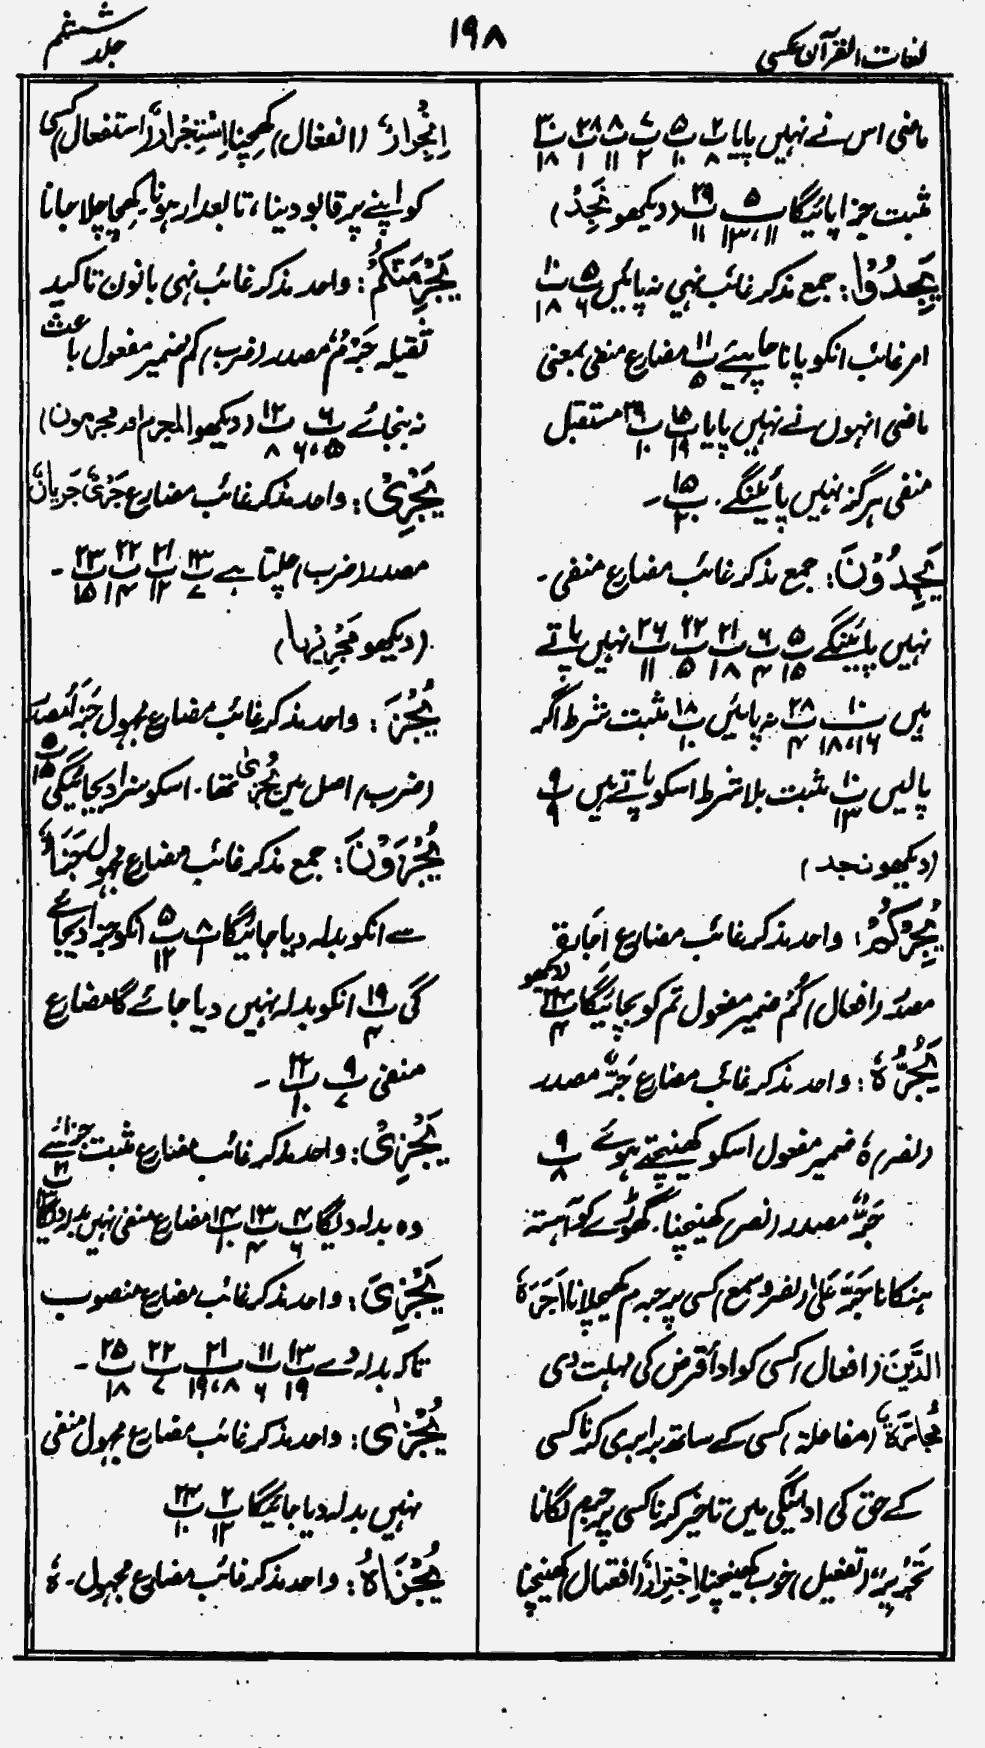 لغات القرآن عکسی
۱۹۸
جلد ششم
ماضی اس نے نہیں پایا پ۲/۸ پ۵/۱۰ پ۷/۲ پ۸/۱۱ پ۲۸/۱ پ۳۰/۱۸
مثبت جزا پائیگا پ۵/۱۱،۱۳ پ۲۹/۱۱ (دیکھو نَجِدُ)
یَجِدُوْا: جمع مذکر غائب نہی نہ پائیں پ۵/۶ پ۱۰/۱۸
امر غائب انکو پانا چاہیئے پ۱۱/۵ مضارع منفی بمعنی
ماضی انہوں نے نہیں پایا پ۱۵/۱۹ پ۲۹/۱۰ مستقبل
منفی ہرگز نہیں پائینگے۔ پ۱۵/۲۰۔
یَجِدُوْنَ: جمع مذکر غائب مضارع منفی۔
نہیں پائینگے پ۵/۱۵ پ۶/۴ پ۲۱/۱۸ پ۲۲/۵ پ۲۶/۱۱ نہیں پاتے
ہیں پ۱۰/۱۶،۱۸ پ۲۸/۴ نہ پائیں پ۱۸/۱۰ مثبت شرط اگر
پالیں پ۱۰/۱۳ مثبت بلا شرط اسکو پاتے ہیں پ۹/۹
(دیکھو نجد)
یُجِرْکُمْ: واحد مذکر غائب مضارع اجارۃ
مصدر (افعال) کُمْ ضمیر مفعول تم کو بچائیگا پ۲۶/۴ (دیکھو
یَجُرُّہٗ: واحد مذکر غائب مضارع جَرٌّ مصدر
(نصر) ہٗ ضمیر مفعول اسکو کھینچتے ہوئے پ۹/۸
جَرٌّ مصدر (نصر) کھینچنا۔ گھوڑے کو آہستہ
ہنکانا جَرَّ عَلیٰ (نصر و سمع) کسی پر جرم کھیلانا اَجَرَہٗ
الدَّینَ (افعال) کسی کو ادا قرض کی مہلت دی
مُجاترۃ (مفاعلۃ) کسی کے ساتھ برابری کرنا کسی
کے حق کی ادائیگی میں تاخیر کرنا کسی پر جرم لگانا
تَجْرِیْرٌ (تفعیل) خوب کھینچنا اِجْتِرارٌ (افتعال) کھینچنا
اِنْجِرارٌ (انفعال) کھچنا اِسْتِجْرارٌ (استفعال) کسی
کو اپنے پر قابو دینا، تابعدار ہونا۔ کھچا چلا جانا
یَجْرِمَنَّکُمْ: واحد مذکر غائب نہی بانون تاکید
ثقیلہ جَرْمٌ مصدر (ضرب) کم ضمیر مفعول باعث
نہ بنجائے پ۶/۵،۶ پ۱۲/۸ (دیکھو المجرم اور مجرمون)
یَجْرِیْ: واحد مذکر غائب مضارع جَرْیٌ جَرَیانٌ
مصدر (ضرب) چلتا ہے پ۱۳/۷ پ۲۱/۱۲ پ۲۲/۱۴ پ۲۳/۱۵۔
(دیکھو مَجْرِیٰہا)
یُجْزَ: واحد مذکر غائب مضارع مجہول جَزَاءٌ مصدر
(ضرب) اصل میں یُجْزیٰ تھا۔ اسکو سزا دیجائیگی پ۵/۱۵
یُجْزَوْنَ: جمع مذکر غائب مضارع مجہول جَزَاءٌ
سے انکو بدلہ دیا جائیگا پ۸/۱ پ۵/۱۲ انکو جزا دیجائے
گی پ۱۹/۴ انکو بدلہ نہیں دیا جائے گا مضارع
منفی پ۹/۷ پ۲۲/۱۰۔
یَجْزِیْ: واحد مذکر غائب مضارع مثبت جزا سے
وہ بدلہ دیگا پ۴/۶ پ۱۳/۴ پ۱۴/۱۰ مضارع منفی نہیں بدلہ دیگا پ۲۱/۱۳
یَجْزِیَ: واحد مذکر غائب مضارع منصوب
تاکہ بدلہ دے پ۱۳/۱۹ پ۱۱/۶ پ۲۱/۸،۱۹ پ۲۲/۷ پ۲۵/۱۸۔
یُجْزٰی: واحد مذکر غائب مضارع مجہول منفی
نہیں بدلہ دیا جائیگا پ۲/۱۲ پ۲۴/۱۰
یُجْزَاہُ: واحد مذکر غائب مضارع مجہول۔ ہٗ